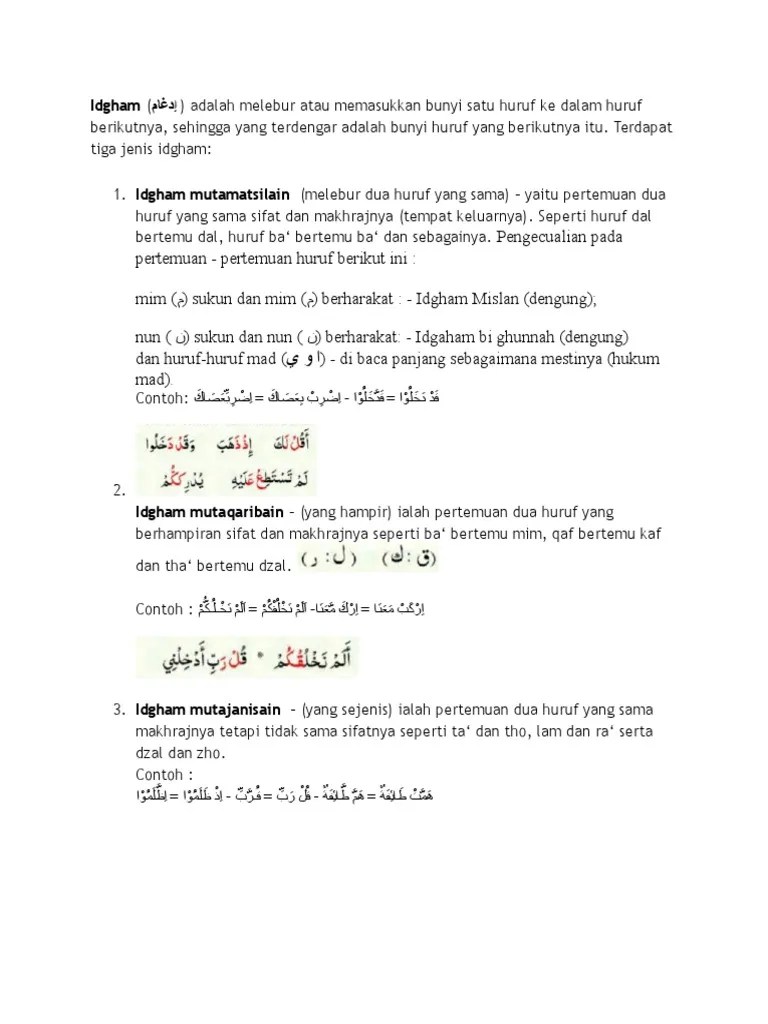 Idgham (إدغام) adalah melebur atau memasukkan bunyi satu huruf ke dalam huruf
berikutnya, sehingga yang terdengar adalah bunyi huruf yang berikutnya itu. Terdapat
tiga jenis idgham:
1. Idgham mutamatsilain (melebur dua huruf yang sama) – yaitu pertemuan dua
huruf yang sama sifat dan makhrajnya (tempat keluarnya). Seperti huruf dal
bertemu dal, huruf ba‘ bertemu ba‘ dan sebagainya. Pengecualian pada
pertemuan - pertemuan huruf berikut ini :
mim (م) sukun dan mim (م) berharakat : - Idgham Mislan (dengung);
nun ( ن) sukun dan nun ( ن) berharakat: - Idgaham bi ghunnah (dengung)
dan huruf-huruf mad (ا و ي) - di baca panjang sebagaimana mestinya (hukum
mad).
Contoh: قَدْ دَخَلُوْا = قَدَّخَلُوْا - اِضْرِبْ بِعَصَاكَ = اِضْرِبِّعَصَاكَ
أَقُلْ لَكَ إِذْذَهَبَ وَقَدْ دَخَلُوا
لَمْ تَسْتَطِعْ عَلَيْهِ يُدْرِككُّمْ
2.
Idgham mutaqaribain – (yang hampir) ialah pertemuan dua huruf yang
berhampiran sifat dan makhrajnya seperti ba‘ bertemu mim, qaf bertemu kaf
dan tha‘ bertemu dzal. (ق : ك) (ل : ر)
Contoh : اِرْكَبْ مَعَنَا = اِرْكَ مَّعَنَا- اَلَمْ نَخْلُقْكُمْ = اَلَمْ نَخْلُكُّمْ
أَلَمْ نَخْلُقكُّمْ * قُلْ رَبِّ أَدْخِلْنِي
3. Idgham mutajanisain – (yang sejenis) ialah pertemuan dua huruf yang sama
makhrajnya tetapi tidak sama sifatnya seperti ta‘ dan tho, lam dan ra‘ serta
dzal dan zho.
Contoh :
هَمَّتْ طَائِفَةٌ = هَمَّ طَّائِفَةٌ - قُلْ رَبِّ = قُرَّبِّ - اِذْ ظَلَمُوْا = اِظَّلَمُوْا